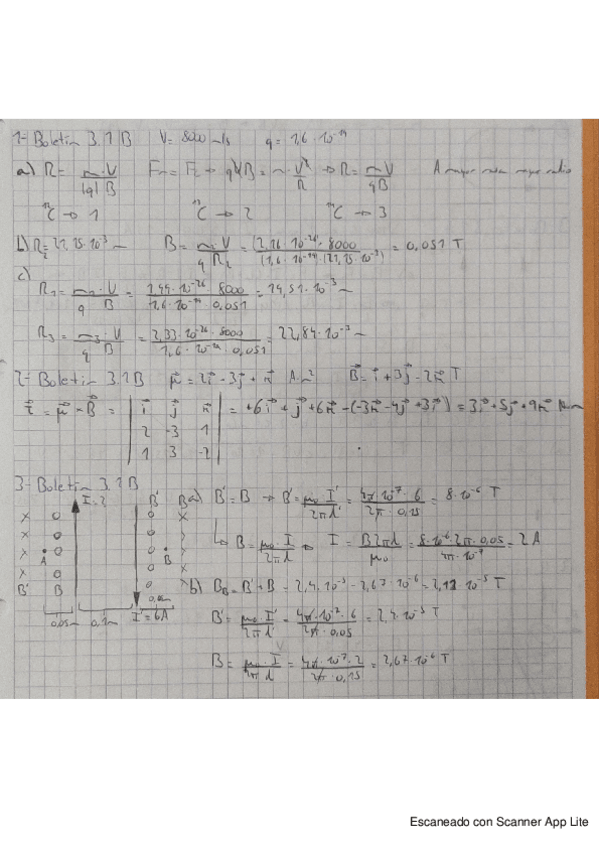 1- Boletín 3.1 B V = 8000 m/s q = 1,6 · 10⁻¹⁹
a) R = m·V / |q| B Fm = Fc → qVB = m · V² / R → R = m V / q B A mayor masa mayor radio
¹²C → 1 ¹³C → 2 ¹⁴C → 3
b) R₂ = 21,15·10⁻³ m B = m · V / q R₂ = (2,16 · 10⁻²⁶ · 8000) / (1,6 · 10⁻¹⁹) · (21,15 · 10⁻³) = 0,051 T
c)
R₁ = m₁ · V / q B = 1,99 · 10⁻²⁶ · 8000 / 1,6 · 10⁻¹⁹ · 0,051 = 19,51 · 10⁻³ m
R₃ = m₃ · V / q B = 2,33 · 10⁻²⁶ · 8000 / 1,6 · 10⁻¹⁹ · 0,051 = 22,84 · 10⁻³ m
2- Boletín 3.1 B μ = 2i - 3j + k A·m² B = i + 3j - 2k T
τ = μ × B = | i j k | = +6i + j + 6k - (-3k - 4j + 3i) = 3i + 5j + 9k N·m
2 -3 1
1 3 -2
3- Boletín 3.1 B
I = 2
B' B
a) B' = B → B' = μ₀ · I' / 2π d' = 4π · 10⁻⁷ · 6 / 2π · 0,15 = 8 · 10⁻⁶ T
→ B = μ₀ · I / 2π d → I = B 2π d / μ₀ = 8 · 10⁻⁶ 2π · 0,05 / 4π · 10⁻⁷ = 2 A
A B
B' B
b) B_B = B' + B = 2,4 · 10⁻⁵ - 2,67 · 10⁻⁶ = 2,13 · 10⁻⁵ T
0,05m 0,1m I' = 6A
B' = μ₀ · I' / 2π d' = 4π · 10⁻⁷ · 6 / 2π · 0,05 = 2,4 · 10⁻⁵ T
B = μ₀ · I / 2π d = 4π · 10⁻⁷ · 2 / 2π · 0,15 = 2,67 · 10⁻⁶ T
Escaneado con Scanner App Lite